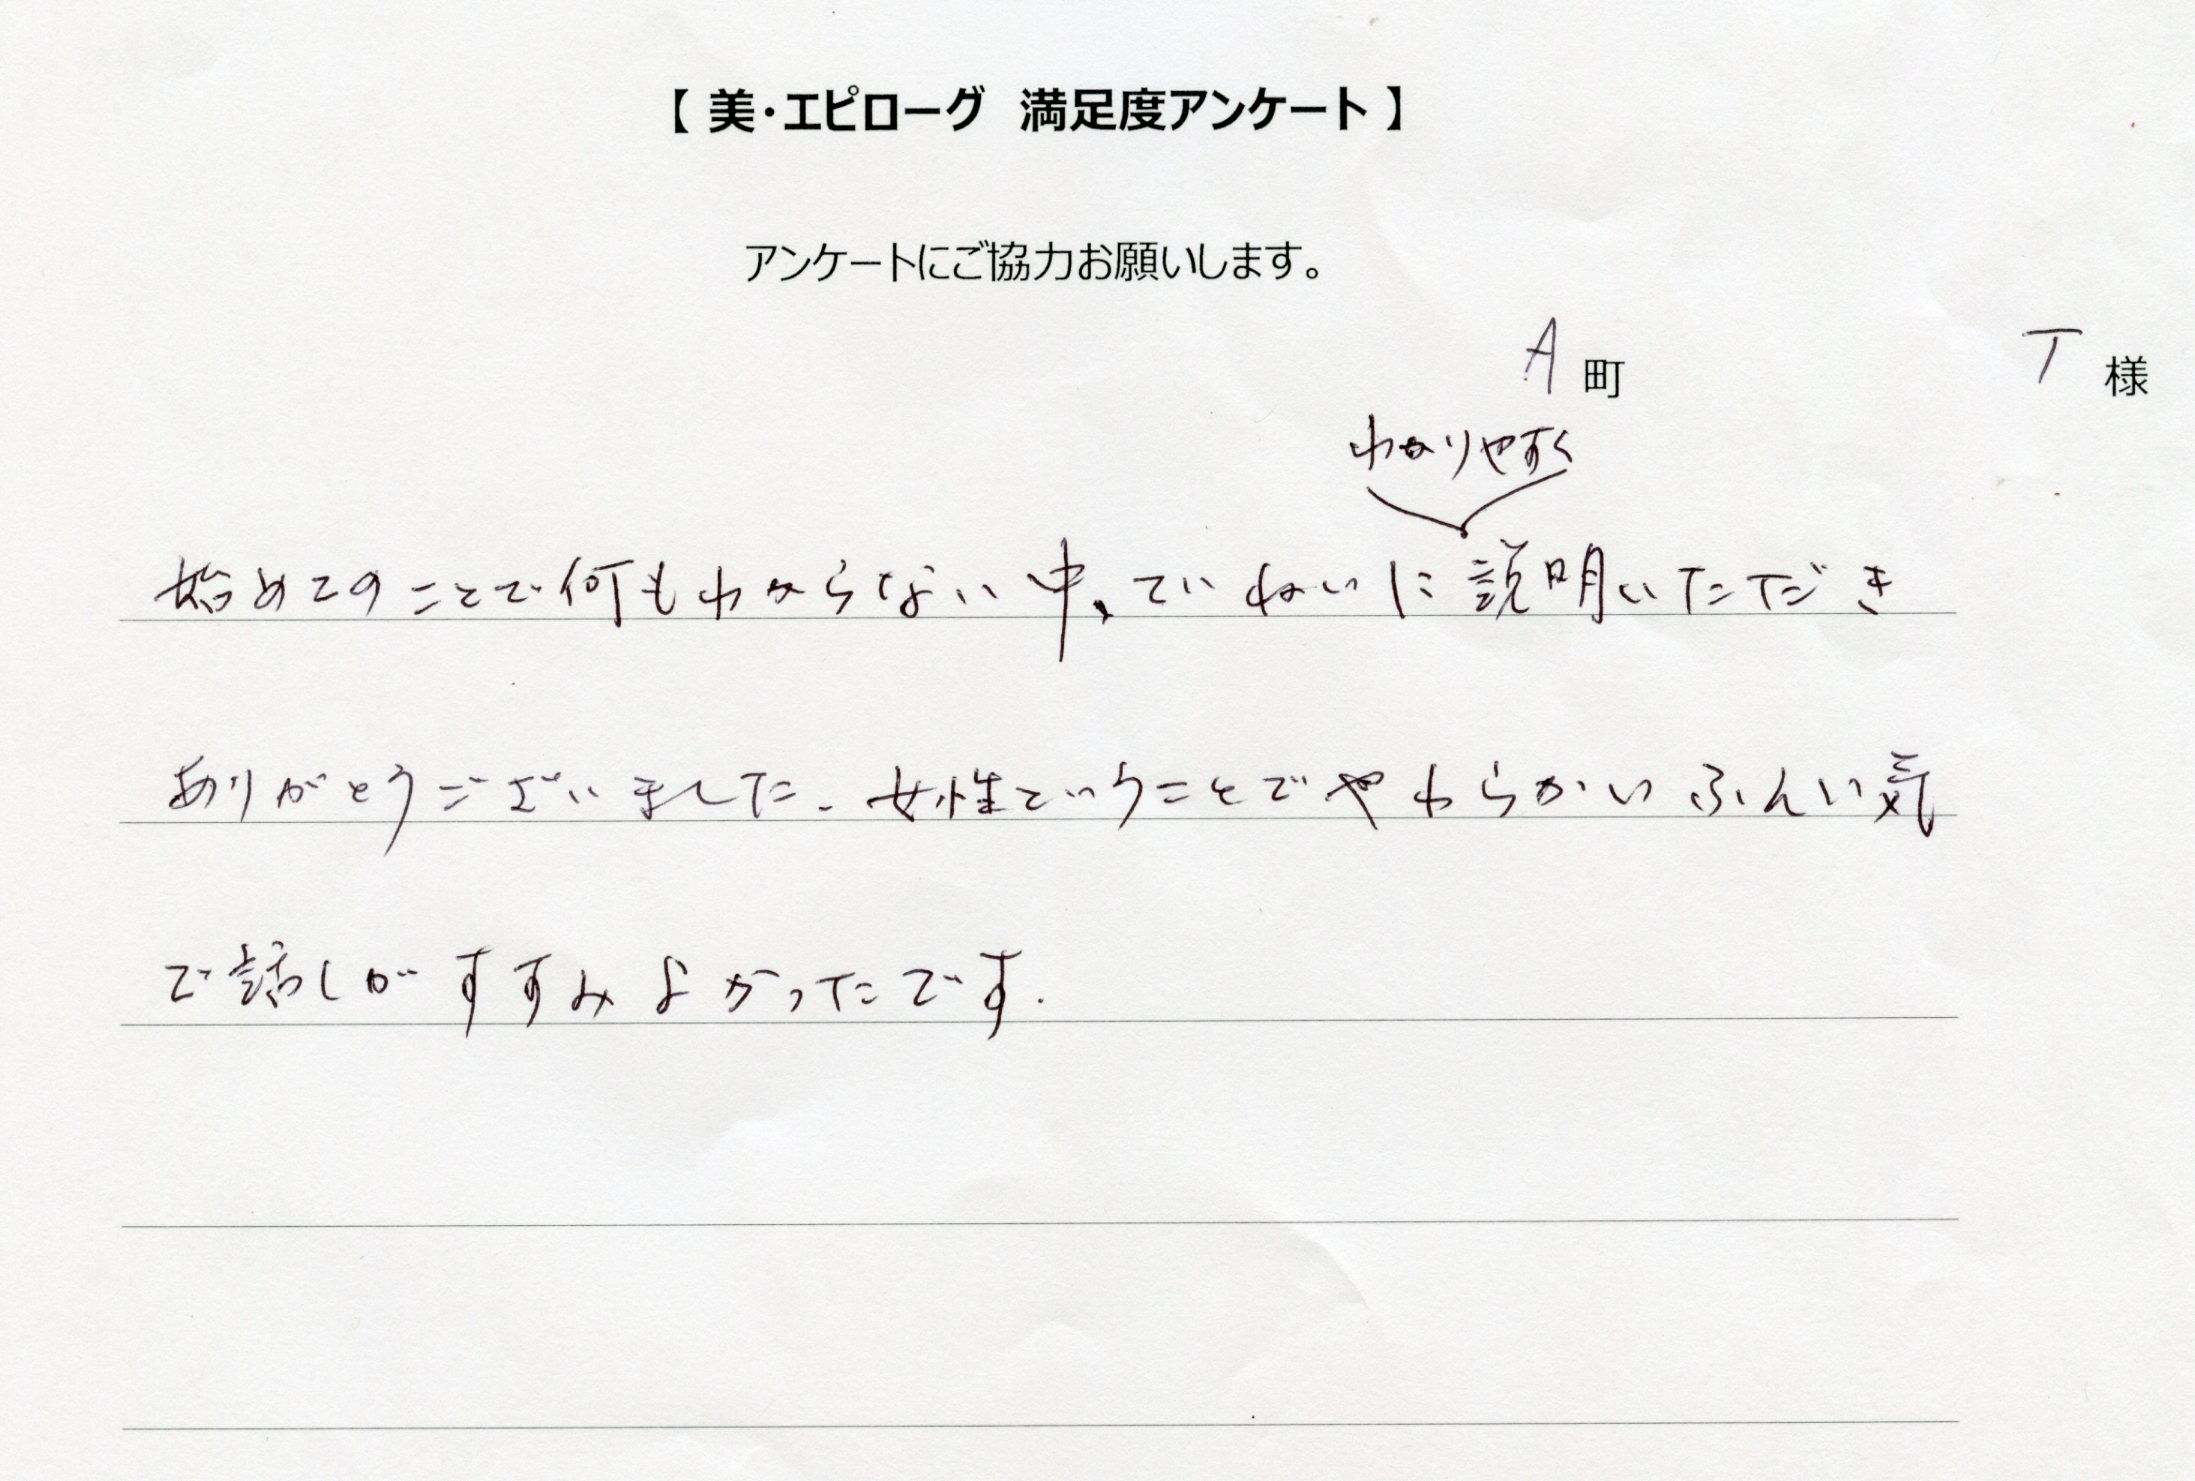 【 美・エピローグ　満足度アンケート 】
アンケートにご協力お願いします。
A 町　T 様
わかりやすく
始めてのことで何もわからない中、ていねいに説明いただき
ありがとうございました。女性ということでやわらかいふんい気
で話しがすすみよかったです。